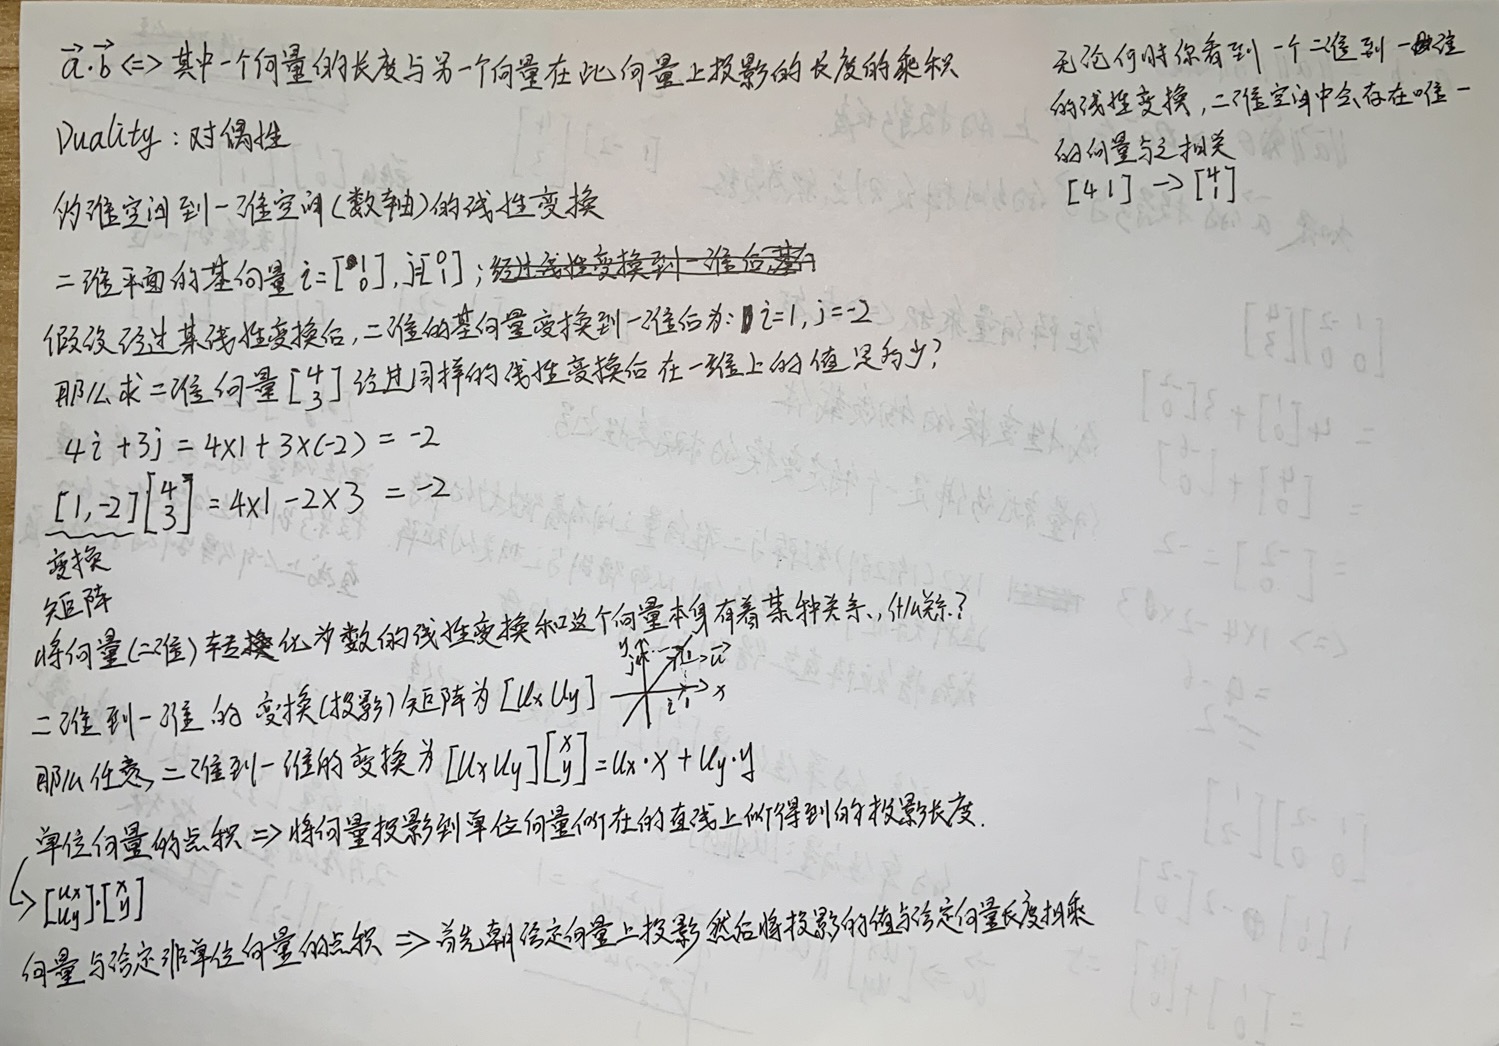 a⃗·b⃗ <=> 其中一个向量的长度与另一个向量在此向量上投影的长度的乘积
Duality：对偶性
维空间到一维空间(数轴)的线性变换
二维平面的基向量 i=[1 0], j[0 1]；经过线性变换到一维后,基向
假设经过某线性变换后,二维的基向量变换到一维后为: i=1, j=-2
那么求二维向量[4 3]经过同样的线性变换后在一维上的值是多少?
4i+3j = 4x1+3x(-2) = -2
[1,-2][4 3] = 4x1-2x3 = -2
变换
矩阵
将向量(二维)转换化为数的线性变换和这个向量本身有着某种关系,什么关系?
y
j
u⃗
i
x
二维到一维的变换(投影)矩阵为[Ux Uy]
那么任意,二维到一维的变换为[Ux Uy][x y]=Ux·x+Uy·y
单位向量的点积 => 将向量投影到单位向量所在的直线上所得到的投影长度.
→[Ux Uy]·[x y]
向量与给定非单位向量的点积 => 首先朝给定向量上投影然后将投影的值与给定向量长度相乘
无论何时你看到一个二维到一维
的线性变换,二维空间中会存在唯一
的向量与之相关
[4 1] → [4 1]